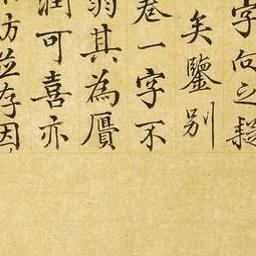 字向之疑
矣鑒别
卷一字不
翁其為贗
潤可喜亦
方並存因